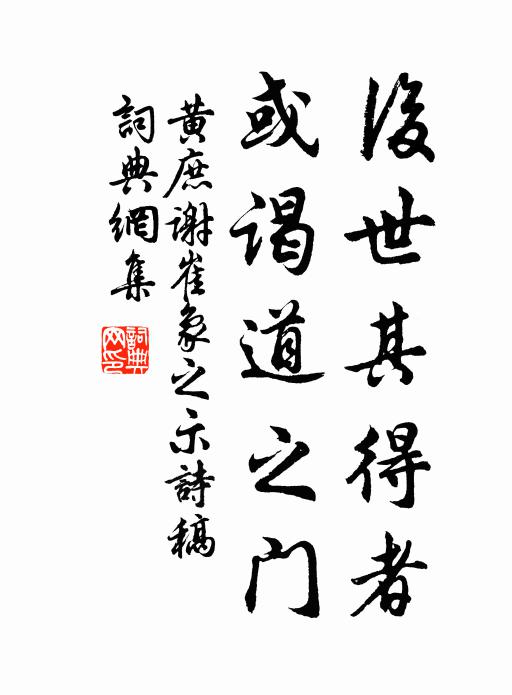 後世其得者
或謁道之門
黃庶謝崔象之示詩稿
詞典網集
詞典網印